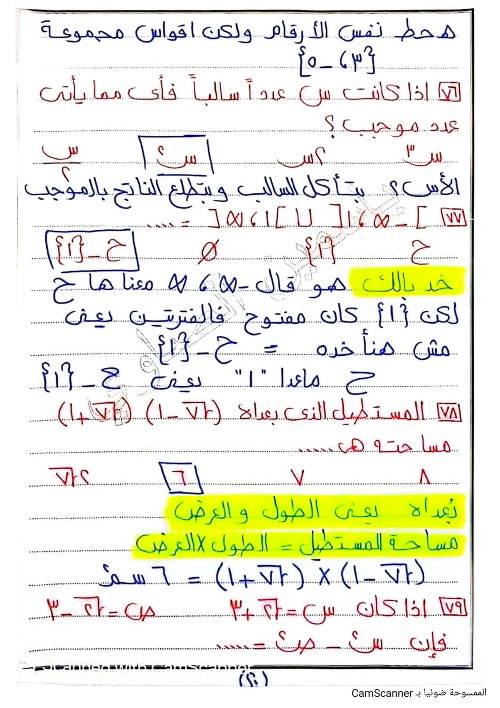 هحط نفس الأرقام ولكن اقواس مجموعة
{٣، -٥}
٧٦ اذا كانت س عدداً سالباً فأى مما يأتى
عدد موجب ؟
س٣ ٢س س٢ س/٢
الأس ٢ بتأكل السالب وبتطلع الناتج بالموجب
٧٧ ]-∞، ١[ ∪ ]١، ∞[ = ....
ح {١} ∅ ح-{١}
خد بالك هو قال -∞، ∞ معناها ح
لكن {١} كان مفتوح فالفترتين يعنى
مش هنأخده = ح-{١}
ح ماعدا "١" يعنى ح-{١}
٧٨ المستطيل الذى بعداه (√٧-١) (√٧+١)
مساحته هى .....
٨ ٧ ٦ ٢√٧
بُعداه يعنى الطول و العرض
مساحة المستطيل = الطول×العرض
(√٧-١) × (√٧+١) = ٦ سم٢
٧٩ اذا كان س = √٢+٣ ص = √٢-٣
فإن س٢ - ص٢ = .....
Scanned with CamScanner
(٢٠)
الممسوحة ضوئيا بـ CamScanner